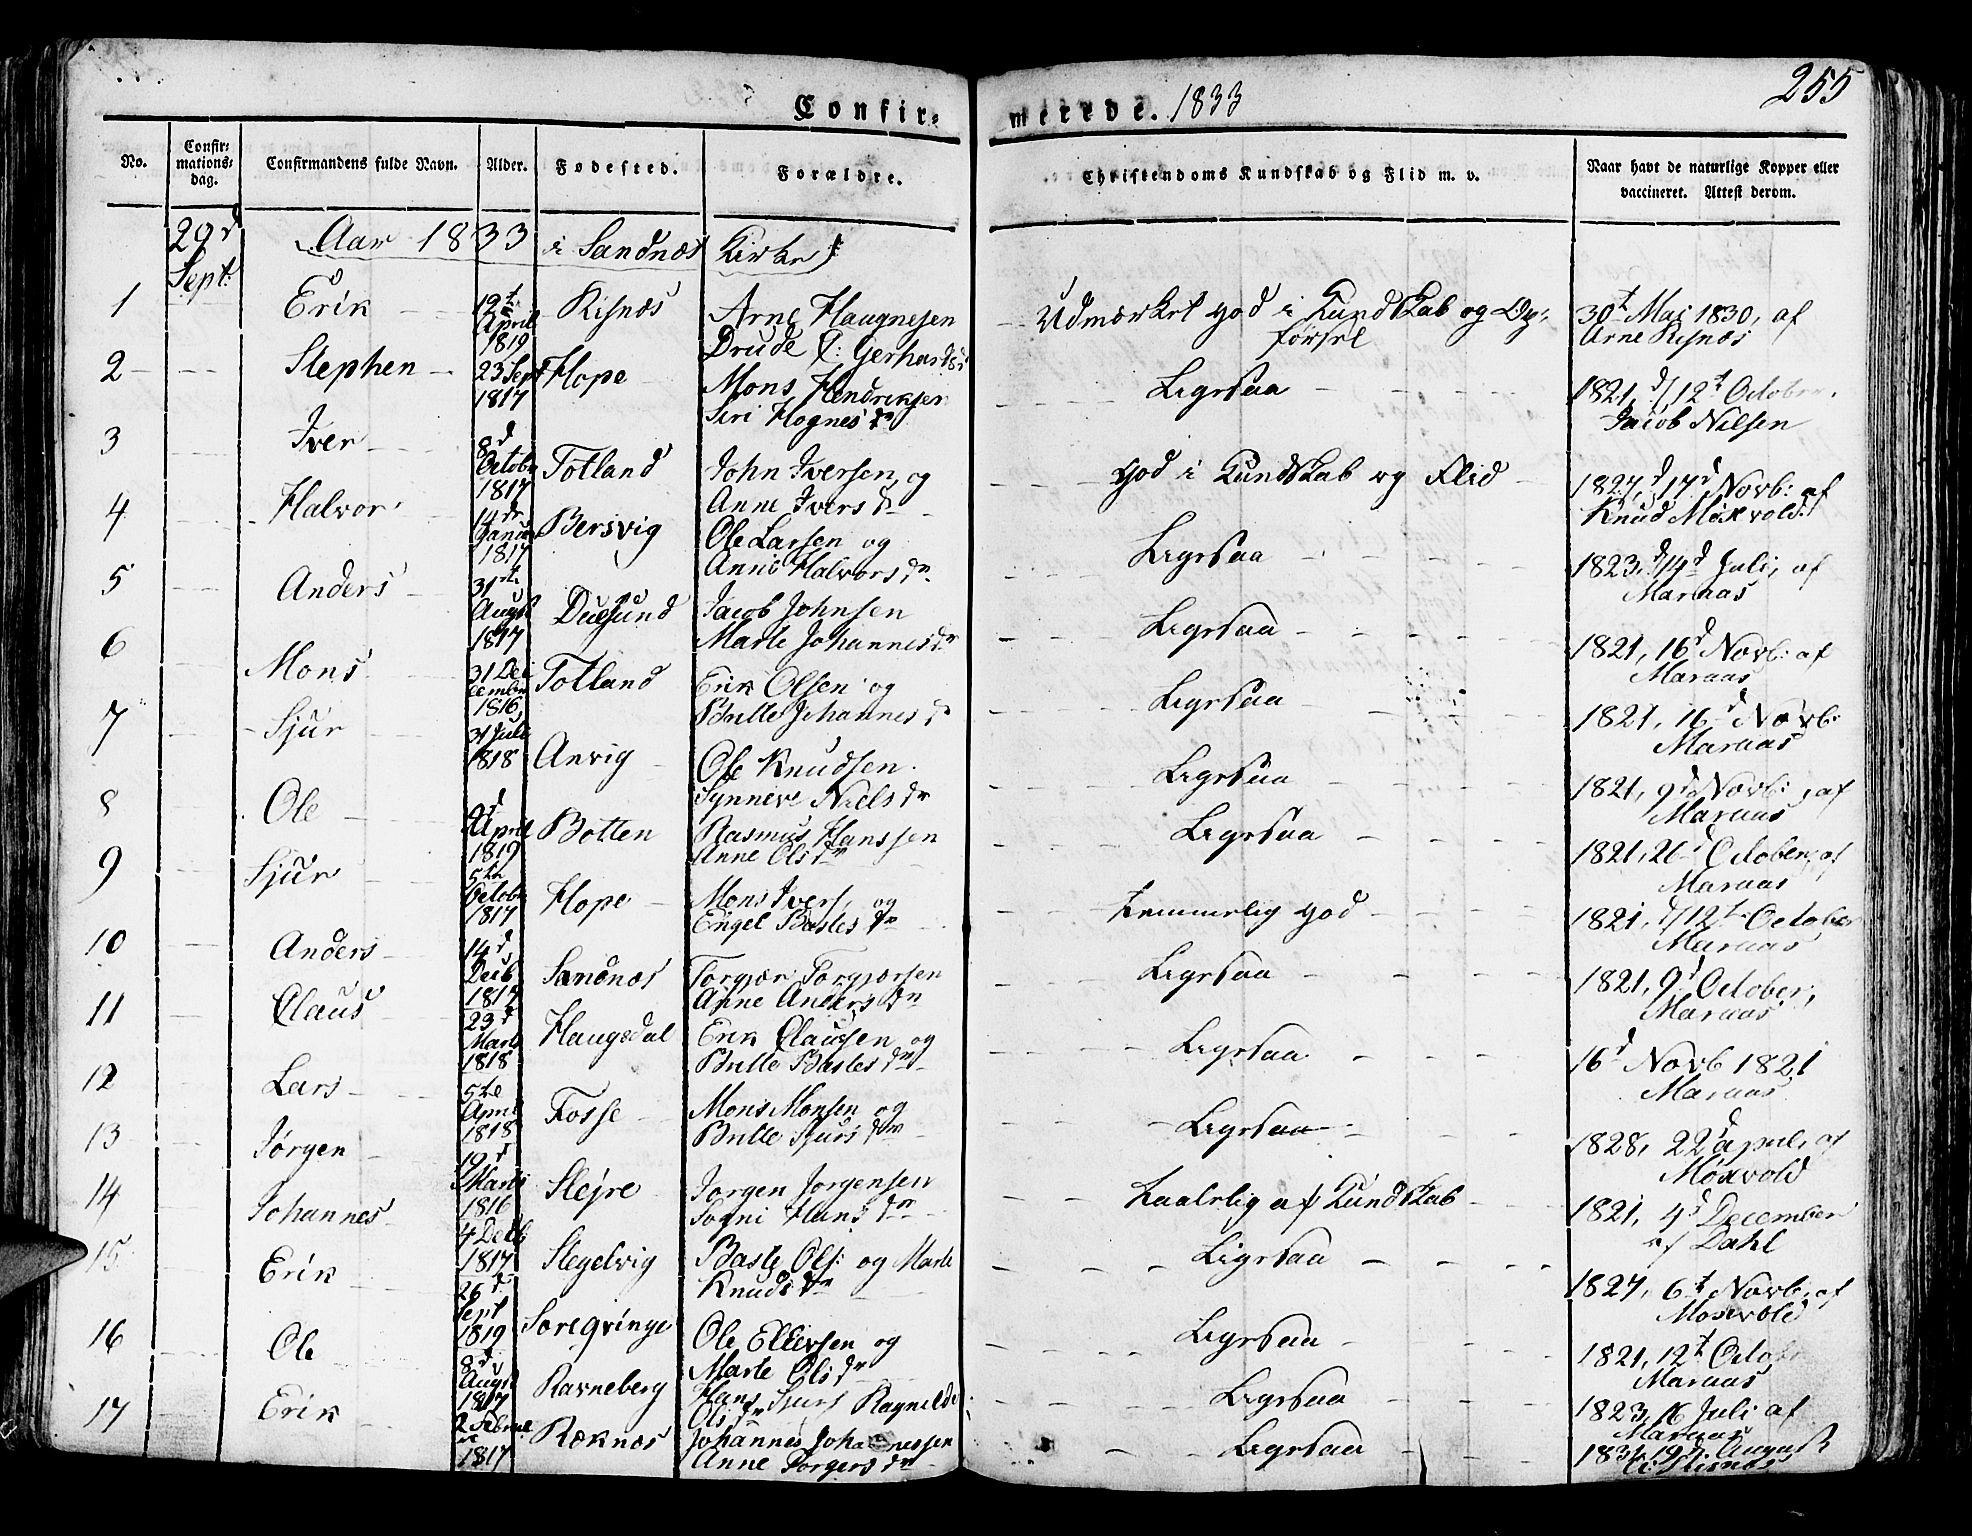 255
Confirmerede. 1833
No.
Confirmationsdag.
Confirmandens fulde Navn.
Alder.
Fødested.
Forældre.
Christendoms Kundskab og Flid m. v.
Naar havt de naturlige Kopper eller vaccineret. Attest derom.
29d Sept: Aar 1833 i Sandnæs Kirke
1 Erik 12te April 1819 Risnæs Arne Haugnesen Drude C: Gerhardsdr Udmærket god i Kundskab og Opførsel 30t Mai 1830, af Arne Risnæs
2 Stephen 23 Sept 1817 Hope Mons Hendriksen Siri Hognesdr Ligesaa 1821, d/12t October Jacob Nilsen
3 Iver 8d Octobr 1817 Totland John Iversen, og Anne Iversdr God i Kundskab og Flid 1827, d 17d Novb: af Knud Moxvold
4 Halvor 14de Januar 1817 Bersvig Ole Larsen og Anne Halvorsdr Ligesaa 1823, d/14d Juli, af Maraas
5 Anders 31te August 1817 Duesund Jacob Johnsen Marte Johannesdr Ligesaa 1821, 16d Novb: af Maraas
6 Mons 31 December 1816 Totland Erik Olsen og Britte Johannesdr Ligesaa 1821, 16d Novb: Maraas
7 Sjur 31 Juli 1818 Anvig Ole Knudsen Synneve Nielsdr Ligesaa 1821, 9d Novb:, af Maraas
8 Ole d April 1819 Botten Rasmus Hanssen Anne Olsdr Ligesaa 1821, 26d October, af Maraas
9 Sjur 5te Octobr 1817 Hope Mons Ivers, og Engel Bastesdr temmelig god 1821, d/12te October Maraas
10 Anders 14d Decb 1817 Sandnæs Torgjær Torgjersen Anne Andersdr Ligesaa 1821, 9d October, Maraas
11 Claus 23d Marts 1818 Haugsdal Erik Claussen og Britte Bastesdr Ligesaa 16d Novb 1821 Maraas
12 Lars 5te April 1818 Fosse Mons Monsen og Britte Sjursdr Ligesaa 1828, 22d April, af Moxvold
13 Jørgen 19d Marts 1816 Slejre Jørgen Jørgensen Sogni Hansdr Taalelig af Kundskab 1821, 4d December af Dahl
14 Johannes 4 Decb 1817 Stegelvig Baste Ols: og Marte Knudsdr Ligesaa 1827, 6t Novb, af Moxvold
15 Erik 26d Sept 1819 Soreqvinge Ole Ellevsen og Marte Olsdr Ligesaa 1821, 12t Octobr Maraas
16 Ole 8d August 1817 Ravneberg Hans Sjurs Ragnilde Olsdr Ligesaa 1823, 16 Juli af Maraas
17 Erik 2 Februar 1817 Ræknæs Johannes Johannessen Anne Torgersdr Ligesaa 1831, 19d August